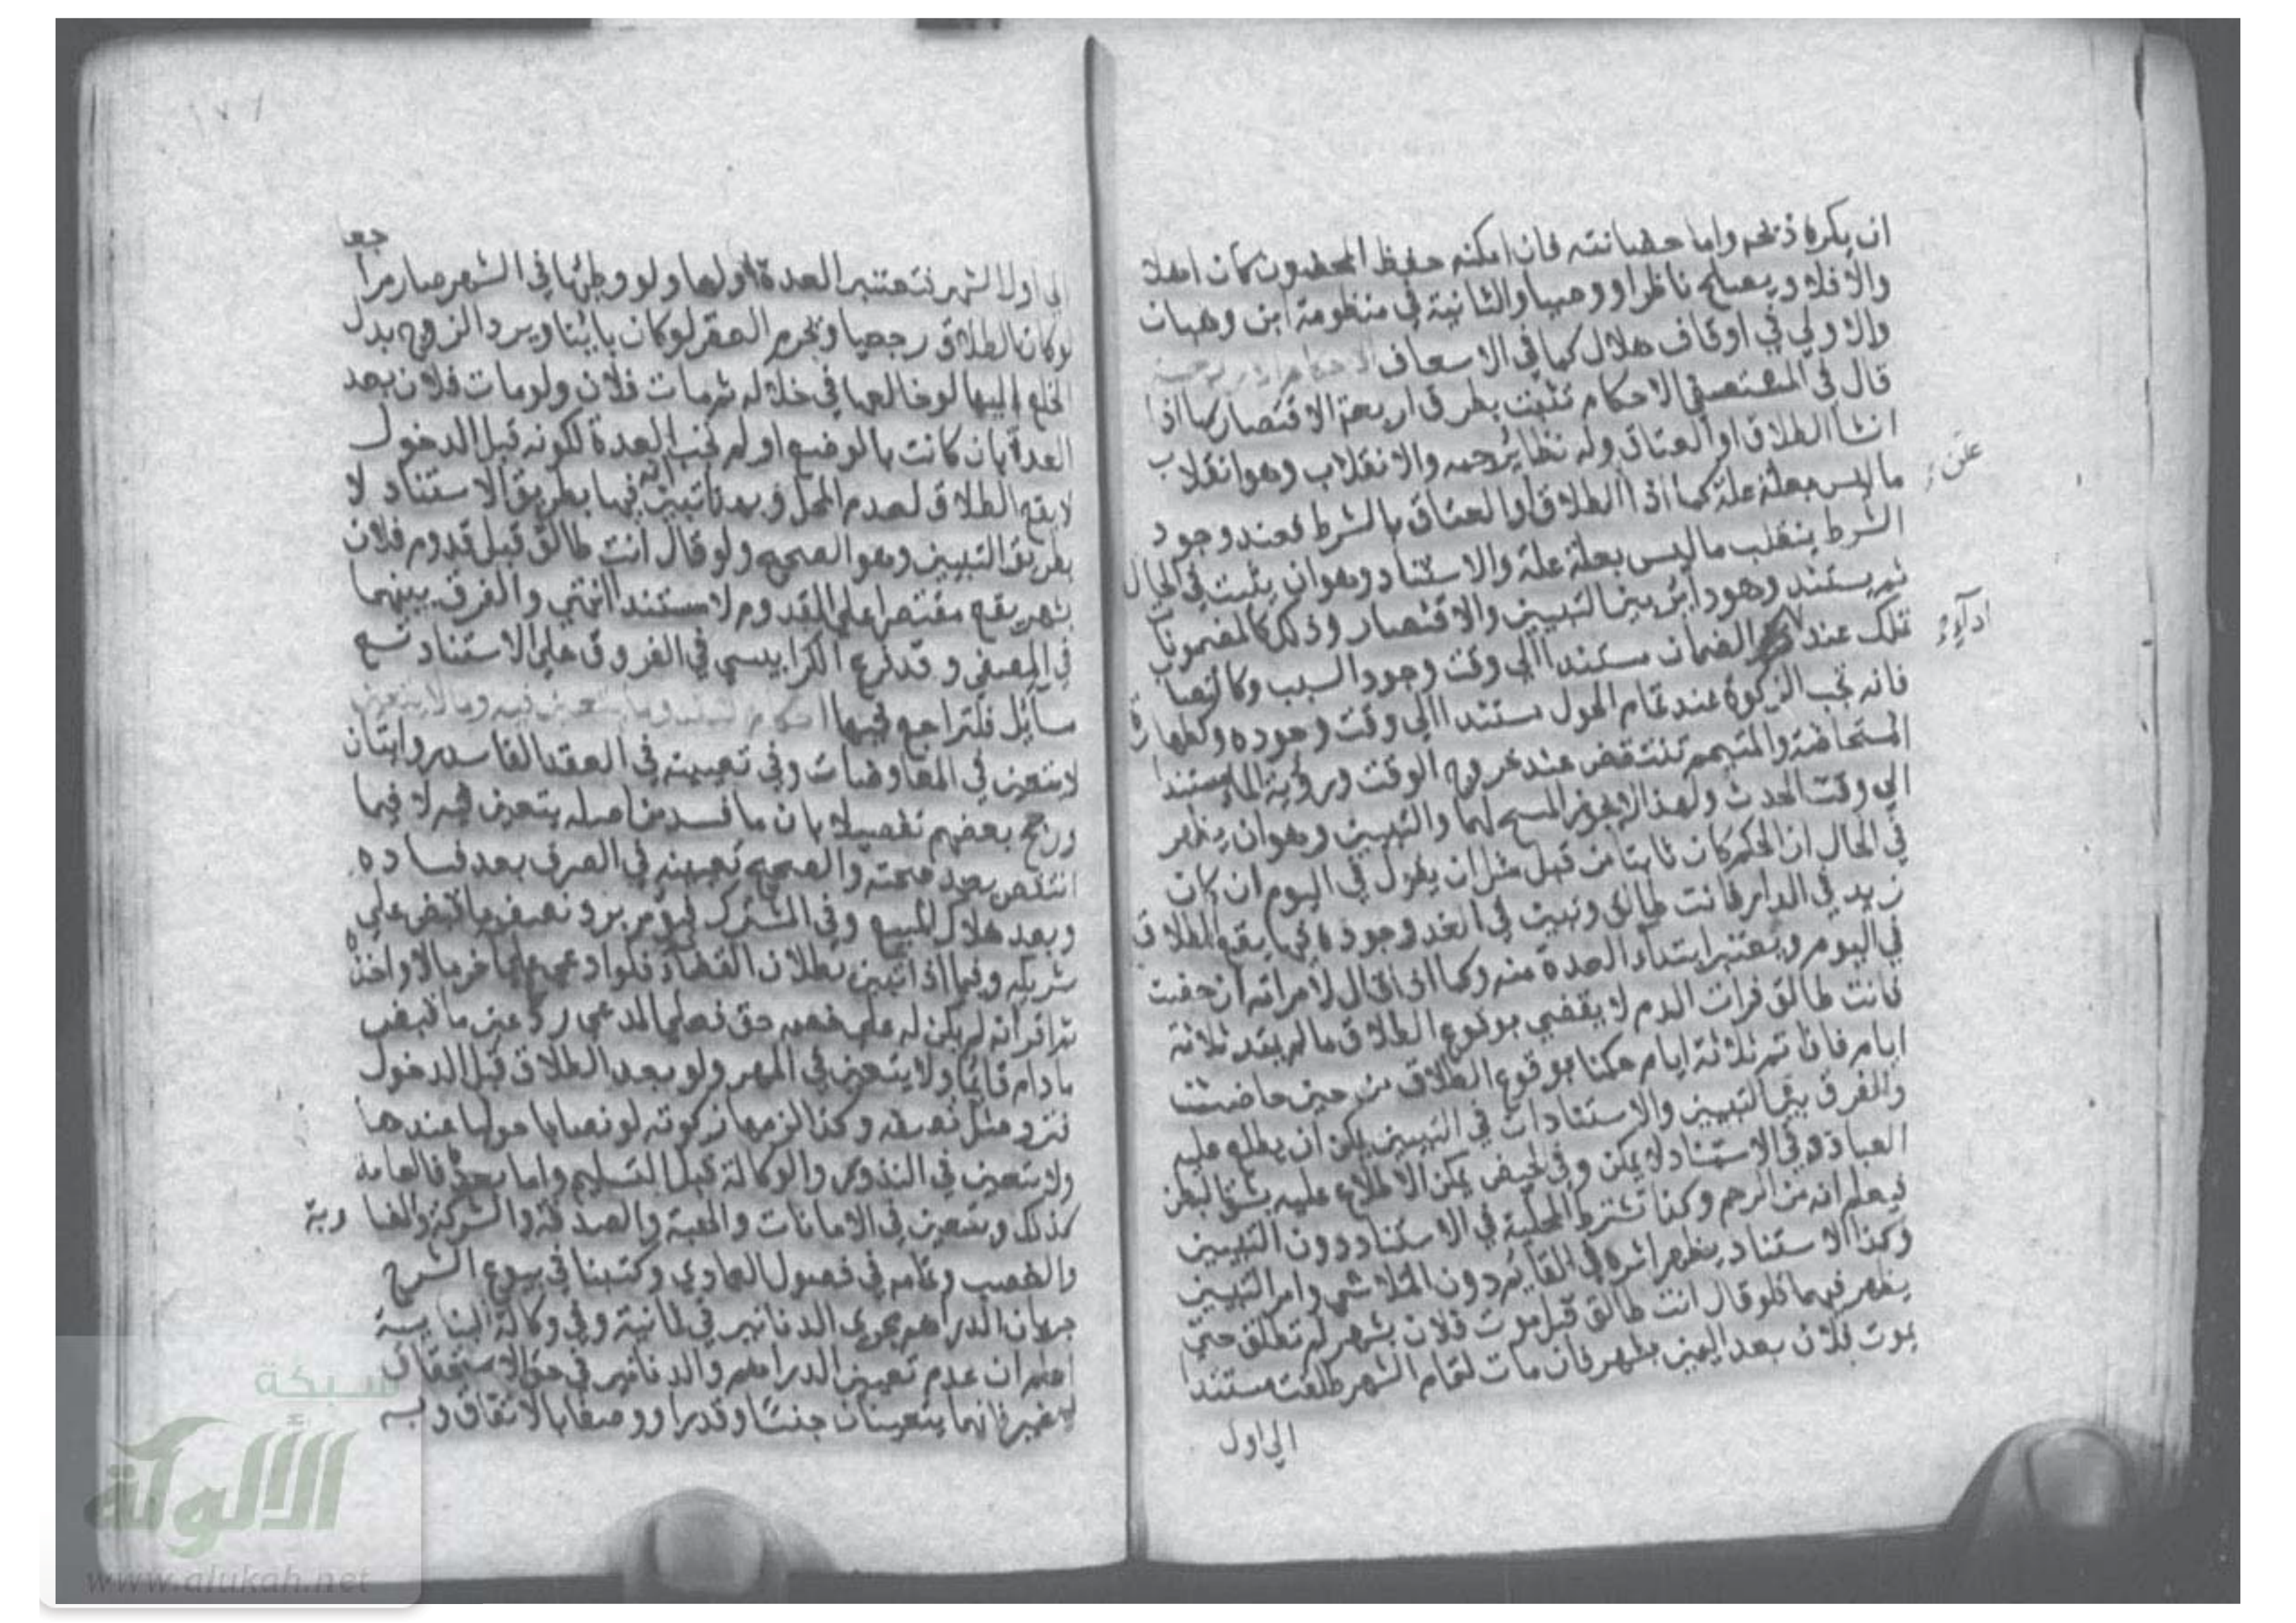 ان يكره ذبحه واما حضانته فان امكنه حفظ المحضون كان اهلا
والا فلا ويصلح ناظرا ووصيا والثانية في منظومة ابن وهبان
والاولي في اوقاف هلال كما في الاسعاف الاحكام الاربعة
قال في المستصفي الاحكام تثبت بطرق اربعة الاقتصار كما اذا
انشا الطلاق او العتاق وله نظاير جمه والانقلاب وهو انقلاب
ما ليس بعلة علة كما اذا الطلاق او العتاق بالشرط فعند وجود
علق
الشرط ينقلب ما ليس بعلة علة والاستناد وهو ان يثبت في الحال
ثم يستند وهو دائر بين التبيين والاقتصار وذلك كالمضمونات
تملك عند الضمان مستندا الي وقت وجود السبب وكالنصاب
ادآء
فانه تجب الزكوة عند تمام الحول مستندا الي وقت وجوده وكطهارة
المستحاضة والمتيمم تنتقض عند خروج الوقت ورؤية الماء مستندا
الي وقت الحدث ولهذا لا يجوز المسح لهما والتبيين وهو ان يظهر
في الحال ان الحكم كان ثابتا من قبل مثل ان يقول في اليوم ان كان
زيد في الدار فانت طالق وتبين في الغد وجوده فيها يقع الطلاق
في اليوم ويعتبر ابتداء العدة منه وكما اذا قال لامراته ان حضت
فانت طالق فرات الدم لا يقضي بوقوع الطلاق ما لم يمتد ثلاثة
ايام فاذا تم ثلاثة ايام حكمنا بوقوع الطلاق من حين حاضت
والفرق بين التبيين والاستناد ان في التبيين يمكن ان يطلع عليه
العباد وفي الاستناد لا يمكن وفي الحيض يمكن الاطلاع عليه بشق البطن
فيعلم انه من الرحم وكذا تشترط المحلية في الاستناد دون التبيين
وكذا الاستناد يظهر اثره في القايم دون المتلاشي واثر التبيين
يظهر فيهما فلو قال انت طالق قبل موت فلان بشهر لم تطلق حتي
يموت فلان بعد اليمين بشهر فان مات لتمام الشهر طلقت مستندا
الي اول
الي اول الشهر فتعتبر العدة اولها ولو وطئها في الشهر صار مرا
جعا
لو كان الطلاق رجعيا وغرم العقر لو كان باينا ويرد الزوج بدل
الخلع اليها لو خالعها في خلاله ثم مات فلان ولو مات فلان بعد
العدة بان كانت بالوضع او لم تجب العدة لكونه قبل الدخول
لا يقع الطلاق لعدم المحل وبهذا تبين انه فيها بطريق الاستناد لا
بطريق التبيين وهو الصحيح ولو قال انت طالق قبل قدوم فلان
بشهر يقع مقتصرا علي القدوم لا مستندا انتهي والفرق بينهما
في المصفي وقد فرع الكرابيسي في الفروق علي الاستناد تسع
مسآئل فلتراجع فيها احكام النقد وما يتعين فيه وما لا يتعين
لا يتعين في المعاوضات وفي تعيينه في العقد الفاسد روايتان
ورجح بعضهم تفصيلا بان ما فسد من اصله يتعين فيه لا فيما
انتقض بعد صحته والصحيح تعيينه في الصرف بعد فساده
وبعد هلاك المبيع وفي المشترك فيؤمر برد نصف ما قبض علي
شريكه وفيما اذا تبين بطلان القضاء فلو ادعي علي اخر مالا واخذه
ثم اقر انه لم يكن له علي خصمه حق فعلي المدعي رد عين ما قبض
ما دام قائما ولا يتعين في المهر ولو بعد الطلاق قبل الدخول
فترد مثل نصفه وكذا لزمها زكوته لو نصابا حوليا عندها
ولا يتعين في النذور والوكالة قبل التسليم واما بعده فالعامة
كذلك ويتعين في الامانات والهبة والصدقة والشركة والمضا ربة
والغصب وتمامه في فصول العمادي وكتبنا في بيوع الشرح
جريان الدراهم مجري الدنانير في ثمانية وفي وكالة البناية
اعلم ان عدم تعيين الدراهم والدنانير في حق الاستحقاق
لا غير فانهما يتعينان جنسًا وقدرا ووصفا بالاتفاق وبه
شبكة
الألوكة
www.alukah.net